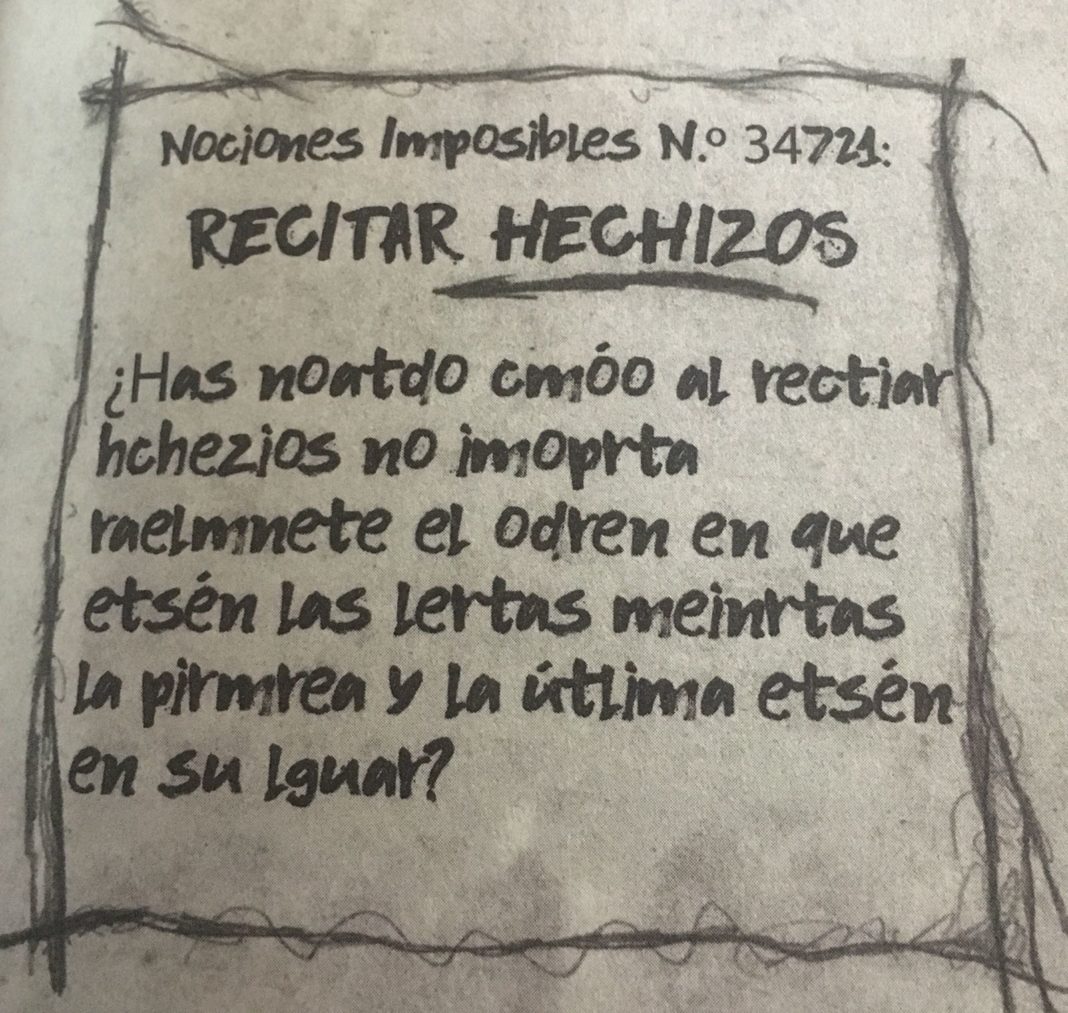 Nociones Imposibles N.º 34721:
RECITAR HECHIZOS
¿Has noatdo cmóo al rectiar
hchezios no imoprta
raelmnete el odren en que
etsén las lertas meinrtas
la pirmrea y la útlima etsén
en su lguar?